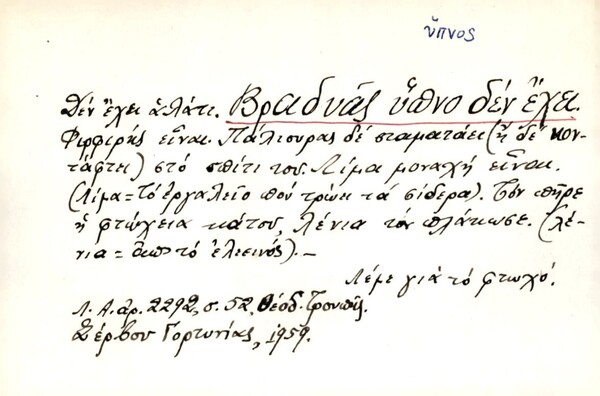 ὕπνος
Δέν ἔχει ἁλάτι. Βραδυᾶς ὕπνο δέν ἔχει.
Φιρφιρής εἶναι. Πάλιουρας δέ σταματάει (ἤ δέ κον-
τάφτει) στό σπίτι του. Λίμα μοναχή εἶναι.
(Λίμα = τό ἐργαλεῖο πού τρώει τά σίδερα). Τόν πῆρε
ἡ φτώχεια κάτου, λένια τόν πλάκωσε. (λέ-
νια = ἀπό τό ἐλεεινός). –
Λέμε γιά τό φτωχό.
Λ. Α. ἀρ. 2292, σ. 52, Θεόδ.
Σέρβου Γορτυνίας, 1959.